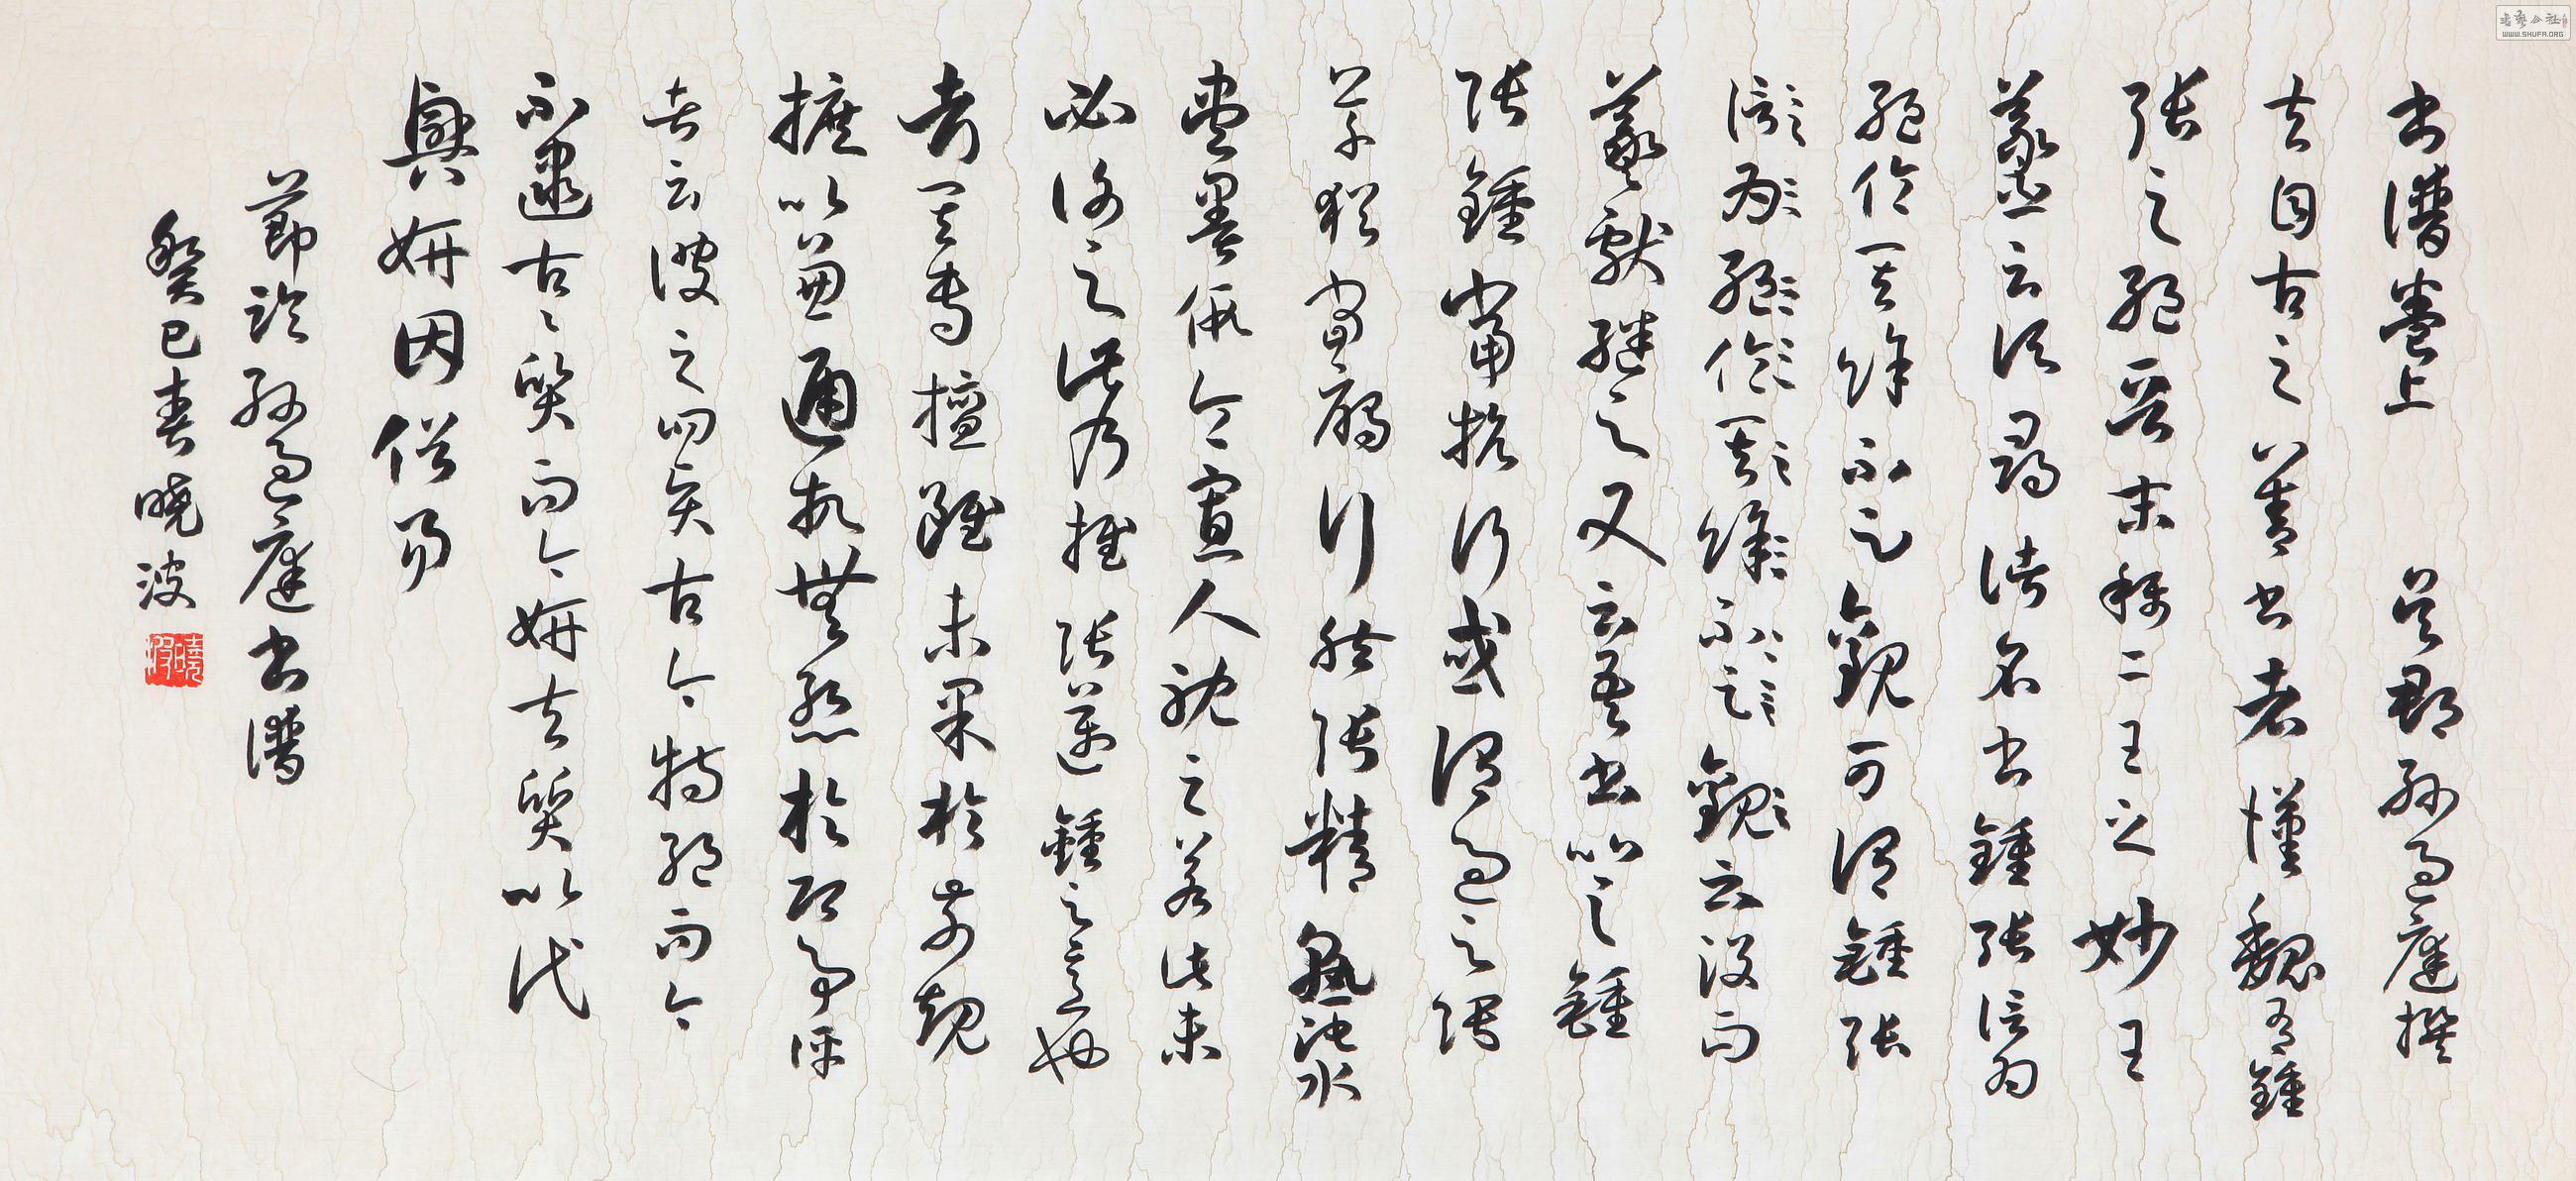 書譜卷上 吳郡孫過庭撰
夫自古之善書者漢魏有鍾
張之絕晉末稱二王之妙王
羲之云頃尋諸名書鍾張信為
絕倫其餘不足觀可謂鍾張
信為絕倫其餘不足觀云沒而
羲獻繼之又云吾書比之鍾
張鍾當抗行或謂過之張
草猶當雁行然張精熟池水
盡墨假令寡人耽之若此未
必謝之此乃推張邁鍾之意也
考其專擅雖未果於前規
摭以兼通故無慚於即事評
者云彼之四賢古今特絕而今
不逮古〻質而今妍夫質以代
興妍因俗易
節臨孫過庭書譜
癸巳春曉波
曉波
書藝公社
WWW.SHUFA.ORG